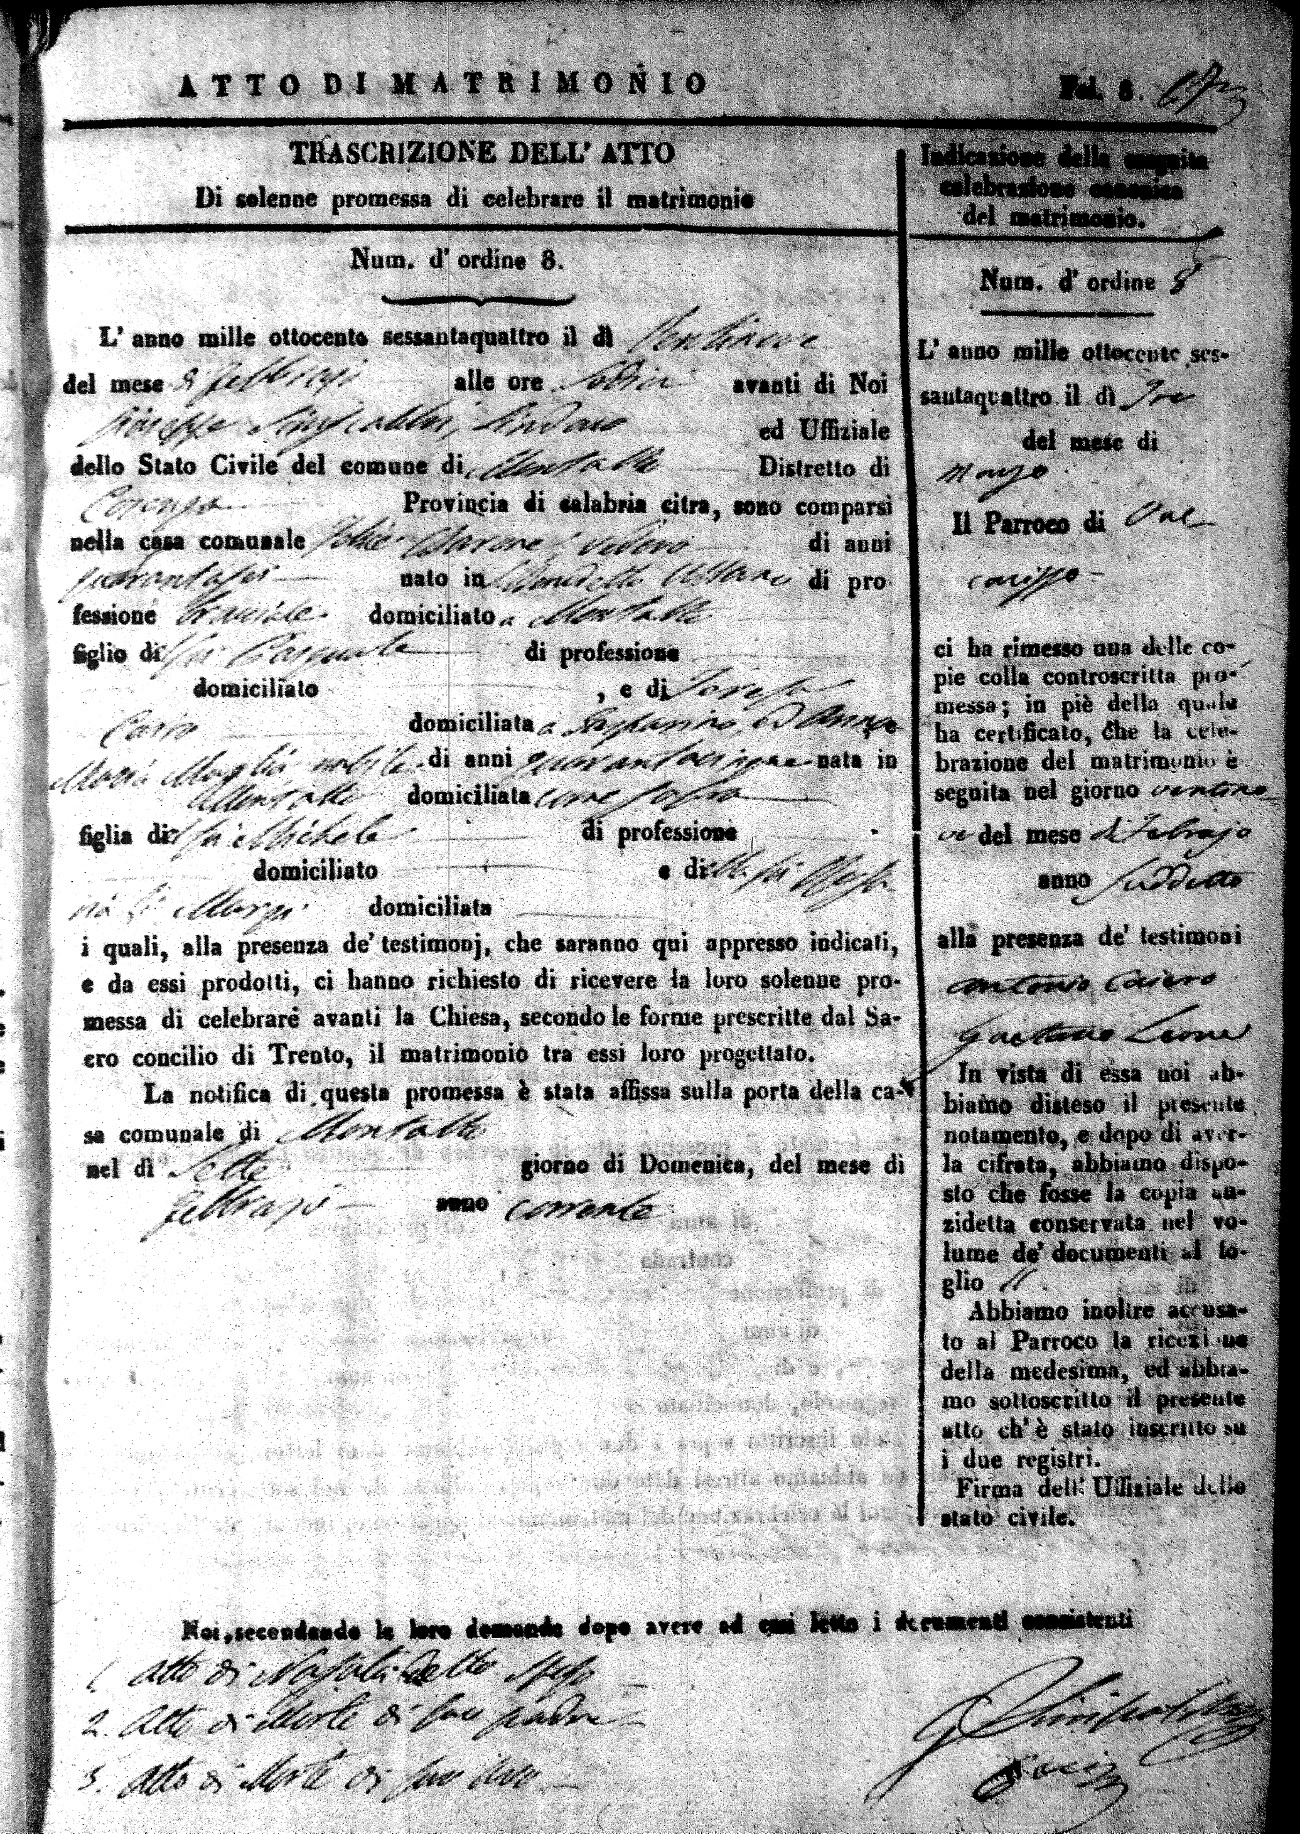 ATTO DI MATRIMONIO
Fol. 8.
TRASCRIZIONE DELL' ATTO
Di solenne promessa di celebrare il matrimonio
Num. d' ordine 8.
L' anno mille ottocento sessantaquattro il dì Ventinove
del mese di Febbrajo alle ore Sedici avanti di Noi
Giuseppe Sindaco ed Uffiziale
dello Stato Civile del comune di Montalto Distretto di
Cosenza Provincia di calabria citra, sono comparsi
nella casa comunale vedovo di anni
quarantasei nato in di pro
fessione domiciliato a Montalto
figlio di fu Pasquale di professione
domiciliato , e di Teresa
domiciliata a ed
Maria nobile di anni nata in
Montalto domiciliata come sopra
figlia di fu Michele di professione
domiciliato e di
domiciliata
i quali, alla presenza de' testimonj, che saranno qui appresso indicati,
e da essi prodotti, ci hanno richiesto di ricevere la loro solenne pro-
messa di celebrare avanti la Chiesa, secondo le forme prescritte dal Sa-
cro concilio di Trento, il matrimonio tra essi loro progettato.
La notifica di questa promessa è stata affissa sulla porta della ca-
sa comunale di Montalto
nel dì Sette giorno di Domenica, del mese di
Febbrajo anno corrente
Indicazione della seguita
celebrazione canonica
del matrimonio.
Num. d' ordine 8
L' anno mille ottocento ses-
santaquattro il dì Tre
del mese di
Marzo
Il Parroco di
ci ha rimesso una delle co-
pie colla controscritta pro-
messa; in piè della quale
ha certificato, che la cele-
brazione del matrimonio è
seguita nel giorno ventino
ve del mese di Febrajo
anno suddetto
alla presenza de' testimoni
Antonio Cairo
Gaetano Leone
In vista di essa noi ab-
biamo disteso il presente
notamento, e dopo di aver-
la cifrata, abbiamo dispo-
sto che fosse la copia an-
zidetta conservata nel vo-
lume de' documenti al fo-
glio 11.
Abbiamo inoltre accusa-
to al Parroco la ricezione
della medesima, ed abbia-
mo sottoscritto il presente
atto ch' è stato inscritto su
i due registri.
Firma dell' Uffiziale dello
stato civile.
Noi, secondando la loro domanda dopo avere ad essi letto i documenti consistenti
1. Atto di Nascita dello sposo
2. Atto di Morte di suo padre
3. Atto di Morte di suo avo